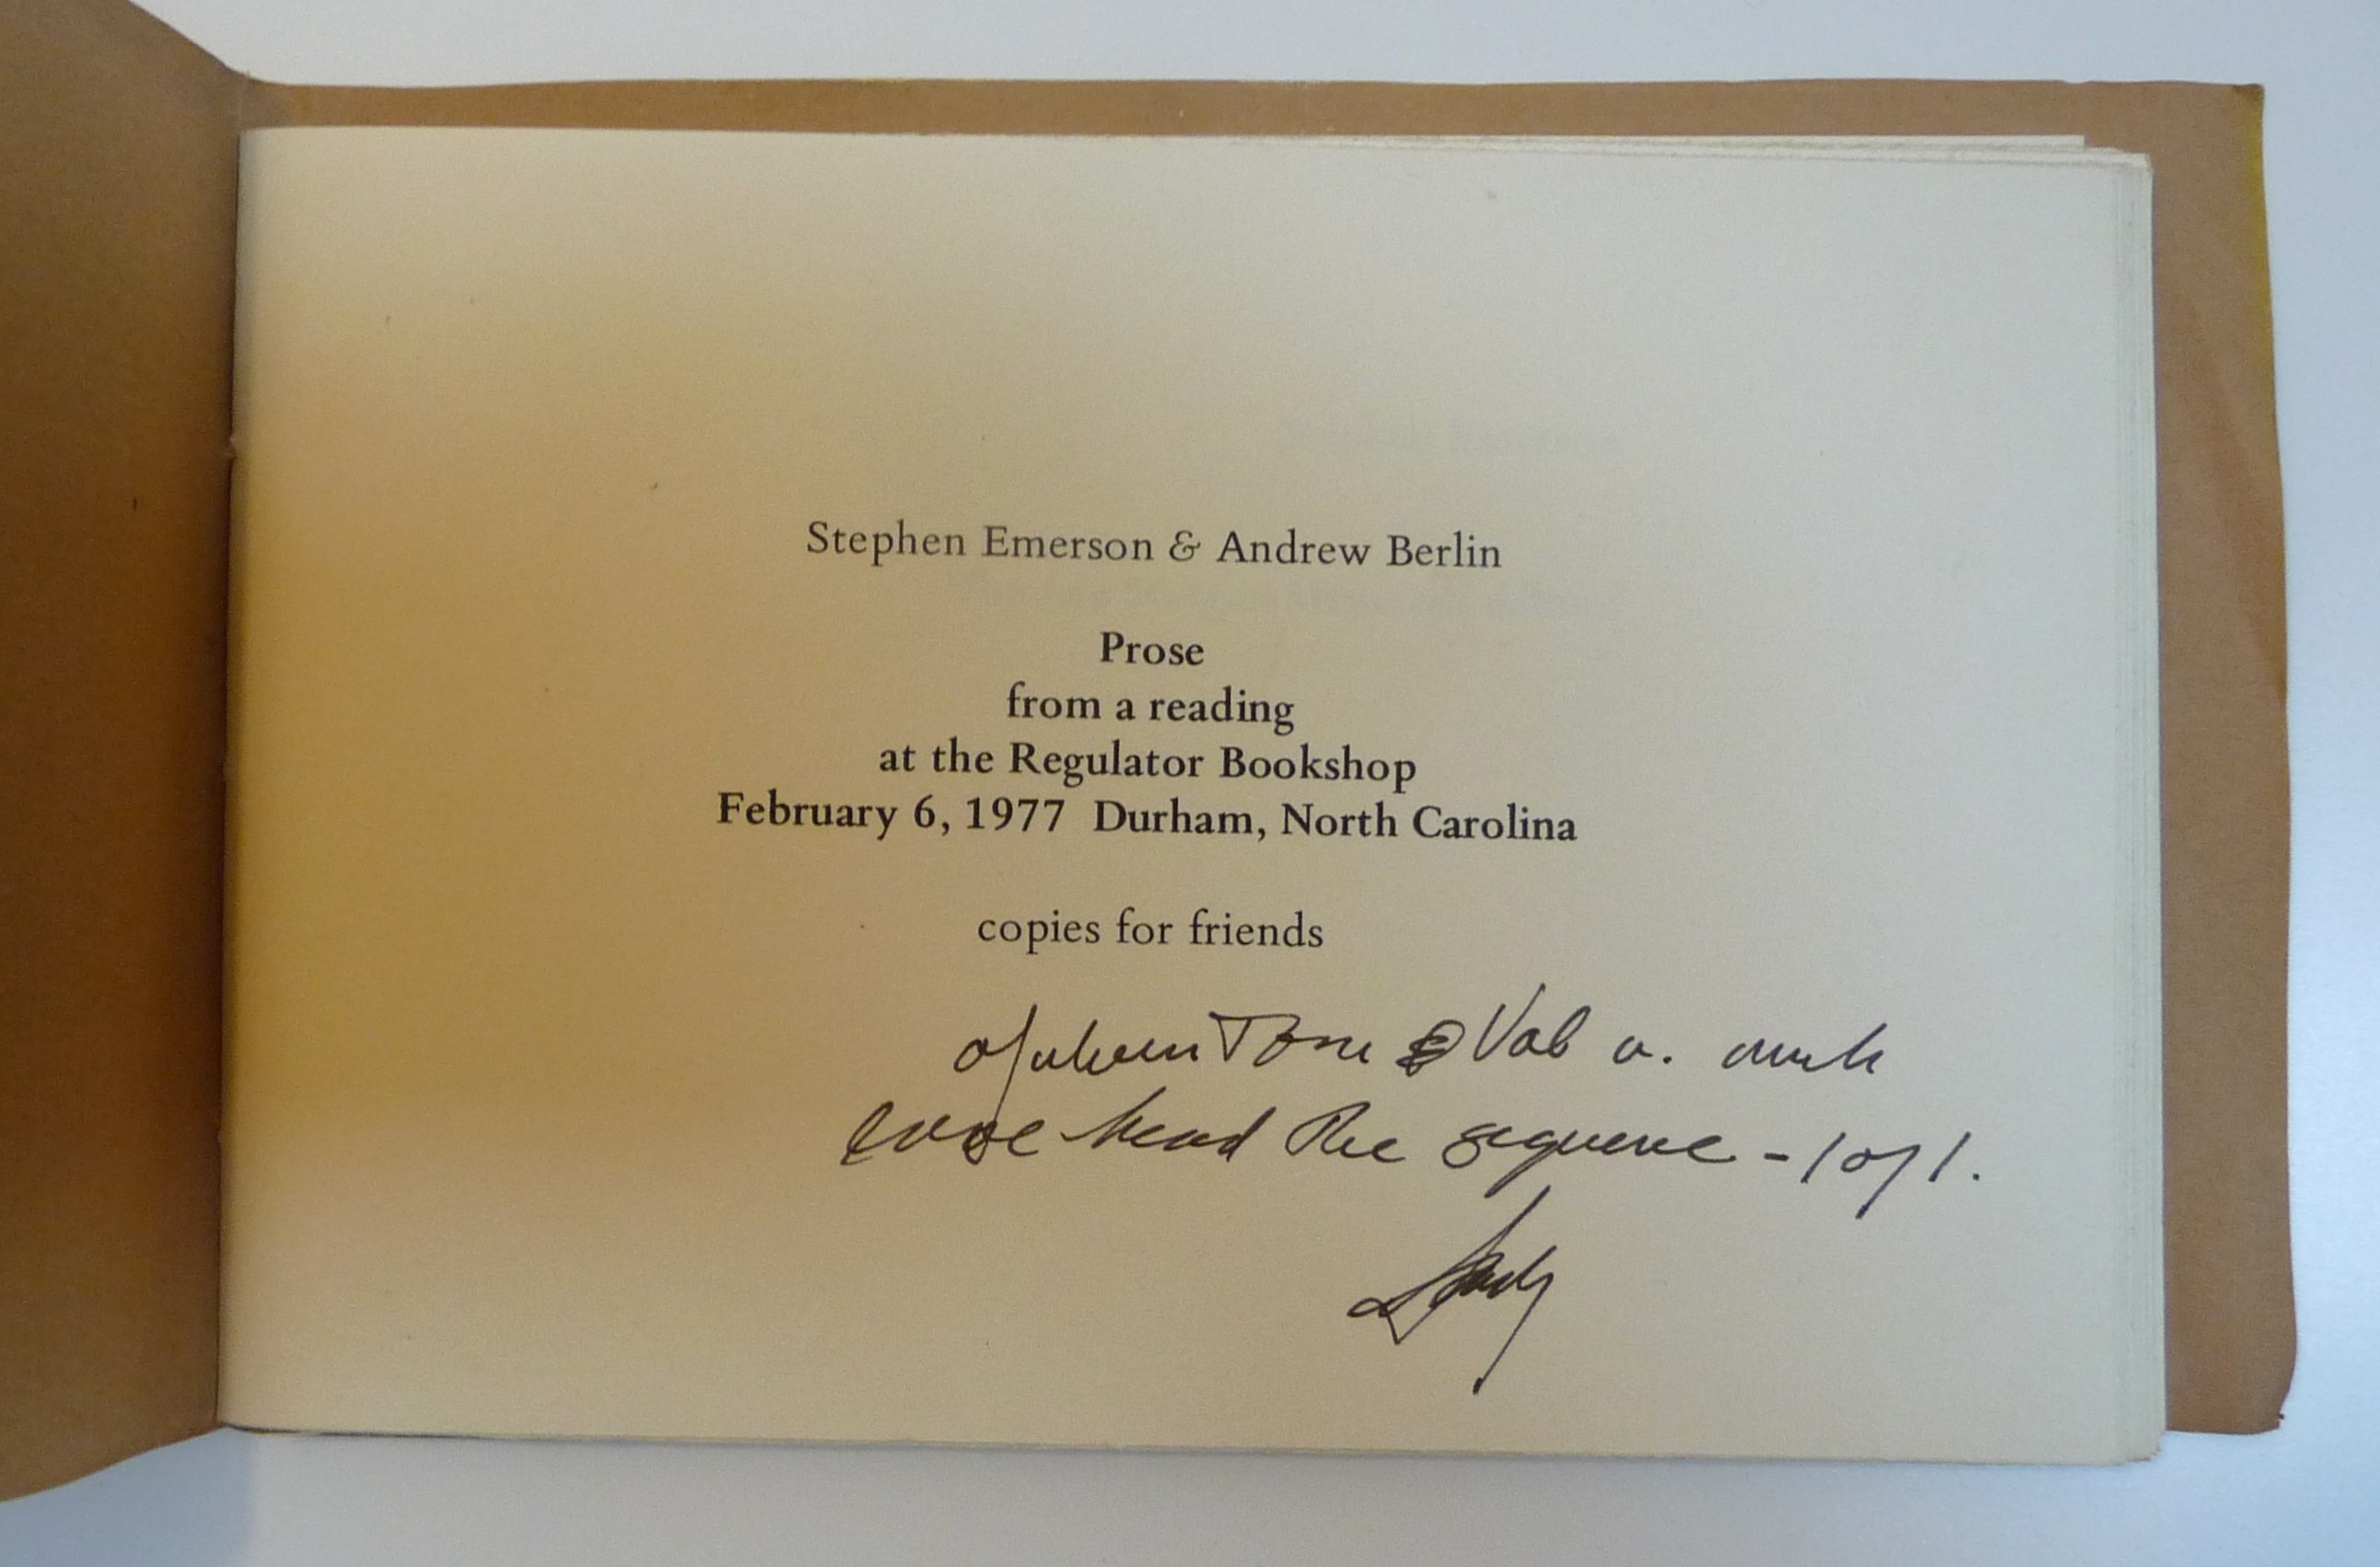 Stephen Emerson & Andrew Berlin
Prose
from a reading
at the Regulator Bookshop
February 6, 1977 Durham, North Carolina
copies for friends
of whom Tom & Val a. much
love head the sequence - 1 of 1.